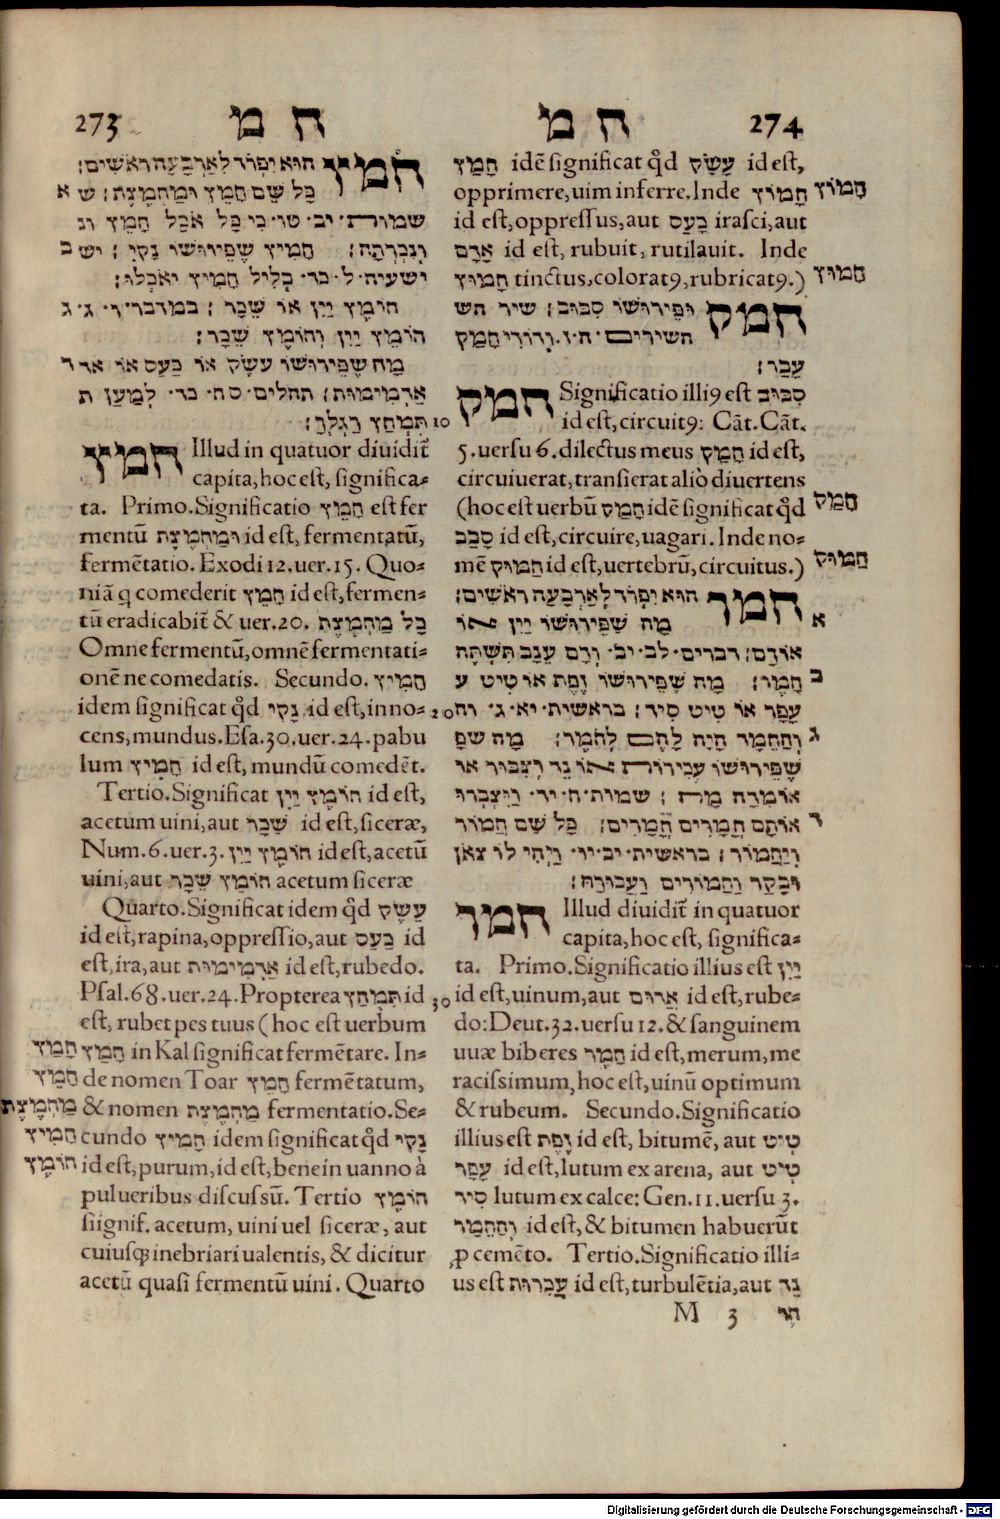 273 ח מ
חמץ הוא יפורד לארבעה ראשים:
א כל שם חמץ ומחמצת: ש
שמות יב טו כי כל אכל חמץ ונ
ונכרתה: חמיץ שפירושו נקי: יש ב
ישעיה ל כד בליל חמיץ יאכלו:
חומץ יין או שכר: במדבר ו ג ג
חומץ יין וחומץ שכר:
מה שפירושו עשק או כעס או אד ד
אדמימות: תהלים סח כד למען ת
תמחץ רגלך: 10
חמץ Illud in quatuor diuidit̃
capita, hoc est, significa-
ta. Primo. Significatio חמץ est fer
mentũ ומחמצת id est, fermentatũ,
fermẽtatio. Exodi 12. uer. 15. Quo-
niã q comederit חמץ id est, fermen-
tũ eradicabit̃ & uer. 20. כל מחמצת
Omne fermentũ, omnẽ fermentati-
onẽ ne comedatis. Secundo. חמיץ
idem significat qd̃ נקי id est, inno- 20
cens, mundus. Esa. 30. uer. 24. pabu
lum חמיץ id est, mundũ comedẽt.
Tertio. Significat חומץ יין id est,
acetum uini, aut שכר id est, siceræ,
Num. 6. uer. 3. חומץ יין id est, acetũ
uini, aut חומץ שכר acetum siceræ
Quarto. Significat idem qd̃ עשק
id est, rapina, oppressio, aut כעס id
est, ira, aut אדמימות id est, rubedo.
Psal. 68. uer. 24. Propterea תמחץ id 30
est, rubet pes tuus (hoc est uerbum
חמץ חמץ in Kal significat fermẽtare. In-
חמץ de nomen Toar חמץ fermẽtatum,
מחמצת & nomen מחמצת fermentatio. Se-
חמיץ cundo חמיץ idem significat qd̃ נקי
חומץ id est, purum, id est, bene in uanno à
pulueribus discussũ. Tertio חומץ
siignif. acetum, uini uel siceræ, aut
cuiusq; inebriari ualentis, & dicitur
acetũ quasi fermentũ uini. Quarto
ח מ 274
חמץ idẽ significat qd̃ עשק id est,
opprimere, uim inferre. Inde חמוץ חמוץ
id est, oppressus, aut כעס irasci, aut
אדם id est, rubuit, rutilauit. Inde
חמוץ tinctus, colorat9, rubricat9.) חמוץ
חמק ופירושו סבוב: שיר הש
השירים ה ו ודודי חמק
עבר:
חמק Significatio illi9 est סבוב
id est, circuit9: Cãt. Cãt.
5. uersu 6. dilectus meus חמק id est,
circuiuerat, transierat aliò diuertens
(hoc est uerbũ חמק idẽ significat qd̃ חמק
סבב id est, circuire, uagari. Inde no-
mẽ חמוק id est, uertebrũ, circuitus.) חמוק
חמר הוא יפורד לארבעה ראשים:
מה שפירושו יין או א
אודם: דברים לב יב ודם ענב תשתה
חמר: מה שפירושו זפת או טיט ע ב
עפר או טיט סיד: בראשית יא ג וה
והחמר היה להם לחמר: מה שפ ג
שפירושו עכירות או
אומרה מה: שמות ח י ויצברו
אותם חמרים חמרים: כל שם חמור ד
ויחמור: בראשית יב יו ויהי לו צאן
ובקר וחמורים ועבודה:
חמר Illud diuidit̃ in quatuor
capita, hoc est, significa-
ta. Primo. Significatio illius est יין
id est, uinum, aut אדום id est, rube-
do: Deut. 32. uersu 12. & sanguinem
uuæ biberes חמר id est, merum, me
racissimum, hoc est, uinũ optimum
& rubeum. Secundo. Significatio
illius est זפת id est, bitumẽ, aut טיט
עפר id est, lutum ex arena, aut טיט
סיד lutum ex calce: Gen. 11. uersu 3.
והחמר id est, & bitumen habuerũt
ꝓ cemẽto. Tertio. Significatio illi-
us est עכירות id est, turbulẽtia, aut גד
M 3
Digitalisierung gefördert durch die Deutsche Forschungsgemeinschaft - DFG